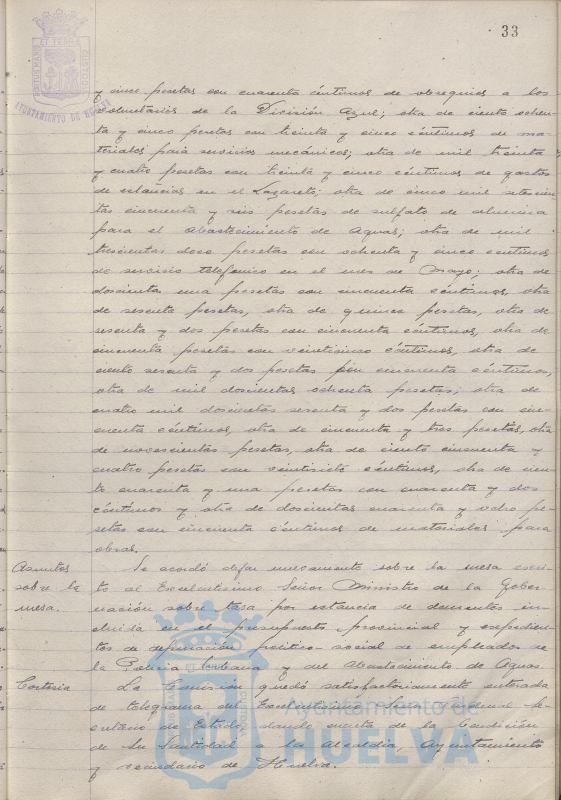 33
AYUNTAMIENTO DE HUELVA
y cinco pesetas con cuarenta céntimos de obsequios a los
voluntarios de la División Azul; otra de ciento ochen-
ta y cinco pesetas con treinta y cinco céntimos de ma-
teriales para servicios mecánicos; otra de mil treinta
y cuatro pesetas con treinta y cinco céntimos de gastos
de estancias en el Lazareto; otra de cinco mil setecien
tas cincuenta y seis pesetas de sulfato de alumina
para el abastecimiento de Aguas; otra de mil
trescientas doce pesetas con ochenta y cinco céntimos
de servicio telefónico en el mes de Mayo; otra de
doscientas una pesetas con cincuenta céntimos, otra
de sesenta pesetas, otra de quince pesetas, otra de
sesenta y dos pesetas con cincuenta céntimos, otra de
cincuenta pesetas con veinticinco céntimos, otra de
ciento sesenta y dos pesetas con cincuenta céntimos,
otra de mil doscientas ochenta pesetas; otra de
cuatro mil doscientas sesenta y dos pesetas con cin-
cuenta céntimos, otra de cincuenta y tres pesetas, otra
de novecientas pesetas, otra de ciento cincuenta y
cuatro pesetas con veintisiete céntimos, otra de cien-
to cuarenta y una pesetas con cuarenta y dos
céntimos y otra de doscientas cuarenta y ocho pe-
setas con cincuenta céntimos de materiales para
obras.
Asuntos
sobre la
mesa.
Se acordó dejar nuevamente sobre la mesa escri-
to al Excelentísimo Señor Ministro de la Gober-
nación sobre tasa por estancia de dementes in-
cluida en el presupuesto provincial y expedien-
tes de depuración político-social de empleados de
la Policía Urbana y del abastecimiento de Aguas.
Cortesia
La Comisión quedó satisfactoriamente enterada
de telegrama del Excelentísimo Señor Cardenal Se-
cretario de Estado dando cuenta de la bendición
de Su Santidad a la Alcaldía, Ayuntamiento
y vecindario de Huelva.
Ayuntamiento de
HUELVA